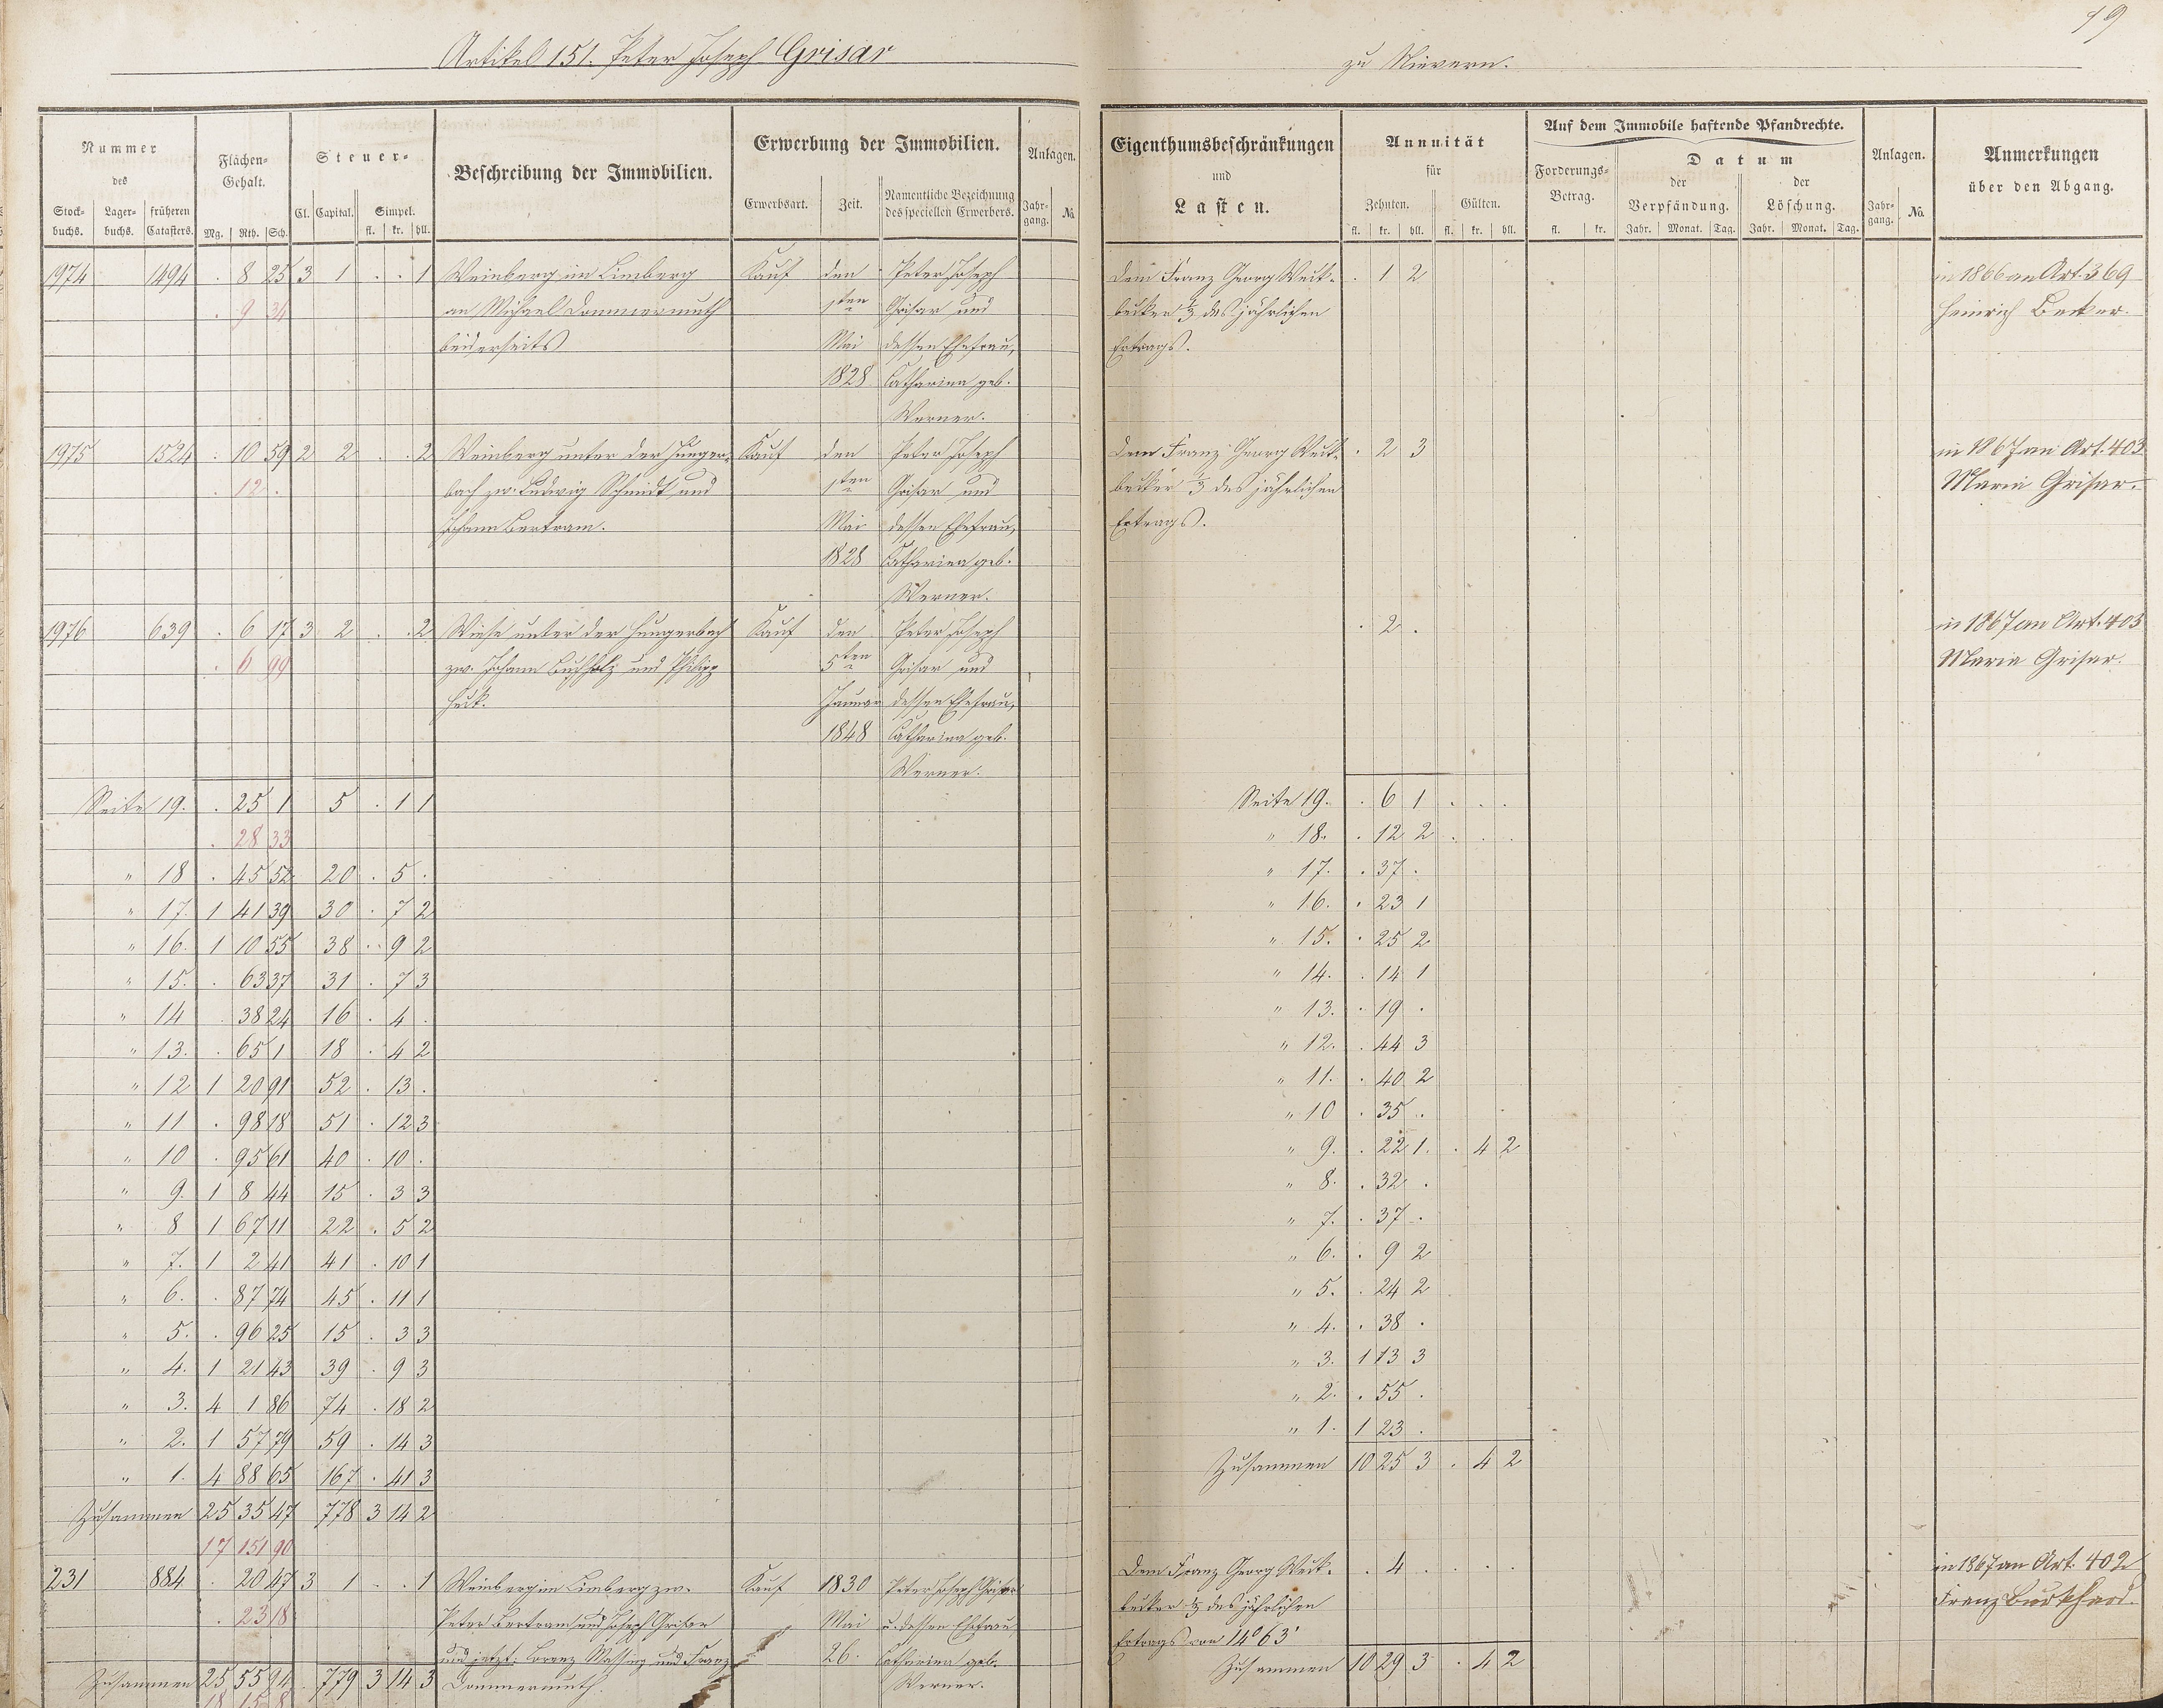 19
Artikel 151. Peter Joseph Grisar
zu Nievern.
Nummer des
Flächen-Gehalt.
Steuer-
Beschreibung der Immobilien.
Erwerbung der Immobilien.
Anlagen.
Stock-buchs. Lager-buchs. früheren Catasters. Mg. Rth. Sch. Cl. Capital. Simpel. fl. kr. hll.
Erwerbsart. Zeit. Namentliche Bezeichnung des speciellen Erwerbers. Jahr-gang. No.
Eigenthumsbeschränkungen und Lasten.
Annuität für
Zehnten. Gülten.
fl. kr. hll. fl. kr. hll.
Auf dem Immobile haftende Pfandrechte.
Forderungs-Betrag. fl. kr.
Datum
der Verpfändung. der Löschung.
Jahr. Monat. Tag. Jahr. Monat. Tag.
Anlagen. Jahr-gang. No.
Anmerkungen über den Abgang.
1974 1494 . 8 25 3 1 . . 1 Weinberg im Limberg Kauf den Peter Joseph
. 9 34 an Michael Dommermuth 1ten Grisar und
beiderseits Mai dessen Ehefrau,
1828 Catharina geb.
Werner.
Dem Franz Georg Weit- . 1 2 in 1866 an Art. 369
becker ⅓ des jährlichen Heinrich Becker.
Ertrags.
1975 1524 . 10 59 2 2 . . 2 Weinberg unter der Hunger- Kauf den Peter Joseph
. 12 . bach zw. Ludwig Schmidt und 1ten Grisar und
Johann Bertram. Mai dessen Ehefrau,
1828 Catharina geb.
Werner.
Dem Franz Georg Weit- . 2 3 in 1867 an Art. 403
becker ⅓ des jährlichen Maria Grisar.
Ertrags.
1976 639 . 6 17 3 2 . . 2 Wiese unter der Hungerbach Kauf den Peter Joseph
. 6 99 zw. Johann Buchholz und Philipp 5ten Grisar und
Huck. Januar dessen Ehefrau,
1848 Catharina geb.
Werner.
. 2 . in 1867 an Art. 403
Maria Grisar.
Seite 19. . 25 1 5 . 1 1
. 28 33
" 18 . 45 52 20 . 5 .
" 17. 1 41 39 30 . 7 2
" 16. 1 10 55 38 . 9 2
" 15. . 63 37 31 . 7 3
" 14 . 38 24 16 . 4 .
" 13. . 65 1 18 . 4 2
" 12 1 20 91 52 . 13 .
" 11 . 98 18 51 . 12 3
" 10 . 95 61 40 . 10 .
" 9. 1 8 44 15 . 3 3
" 8 1 67 11 22 . 5 2
" 7. 1 2 41 41 . 10 1
" 6. . 87 74 45 . 11 1
" 5. . 96 25 15 . 3 3
" 4. 1 21 43 39 . 9 3
" 3. 4 1 86 74 . 18 2
" 2. 1 57 79 59 . 14 3
" 1. 4 88 65 167 . 41 3
Zusammen 25 35 47 778 3 14 2
17 151 90
Seite 19. . 6 1 . . .
" 18. . 12 2 . . .
" 17. . 37 .
" 16. . 23 1
" 15. . 25 2
" 14. . 14 1
" 13. . 19 .
" 12. . 44 3
" 11. . 40 2
" 10 . 35 .
" 9. . 22 1 . 4 2
" 8. . 32 .
" 7. . 37 .
" 6. . 9 2
" 5. . 24 2
" 4. . 38 .
" 3. 1 13 3
" 2. . 55 .
" 1. 1 23 .
Zusammen 10 25 3 . 4 2
231 884 . 20 47 3 1 . . 1 Weinberg im Limberg zw. Kauf 1830 Peter Joseph Grisar
. 23 18 Peter Bertram und Joseph Grisar Mai u. dessen Ehefrau
und jetzt: Lorenz Massing und Franz 26. Catharina geb.
Zusammen 25 55 94 . 779 3 14 3 Dommermuth. Werner.
Dem Franz Georg Weit- . 4 . . . . in 1867 an Art. 402
becker ⅓ des jährlichen Franz Burkhard.
Ertrags von 14° 63'
Zusammen 10 29 3 . 4 2